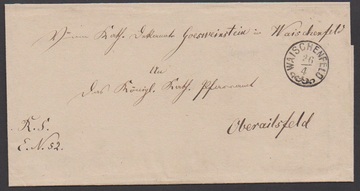 Vom Kath. Dekanate Goesweinstein in Waischenfeld
WAISCHENFELD
26
4
An
Das Königl. Kath. Pfarramt
Oberailsfeld
R. S.
E. N. 52.